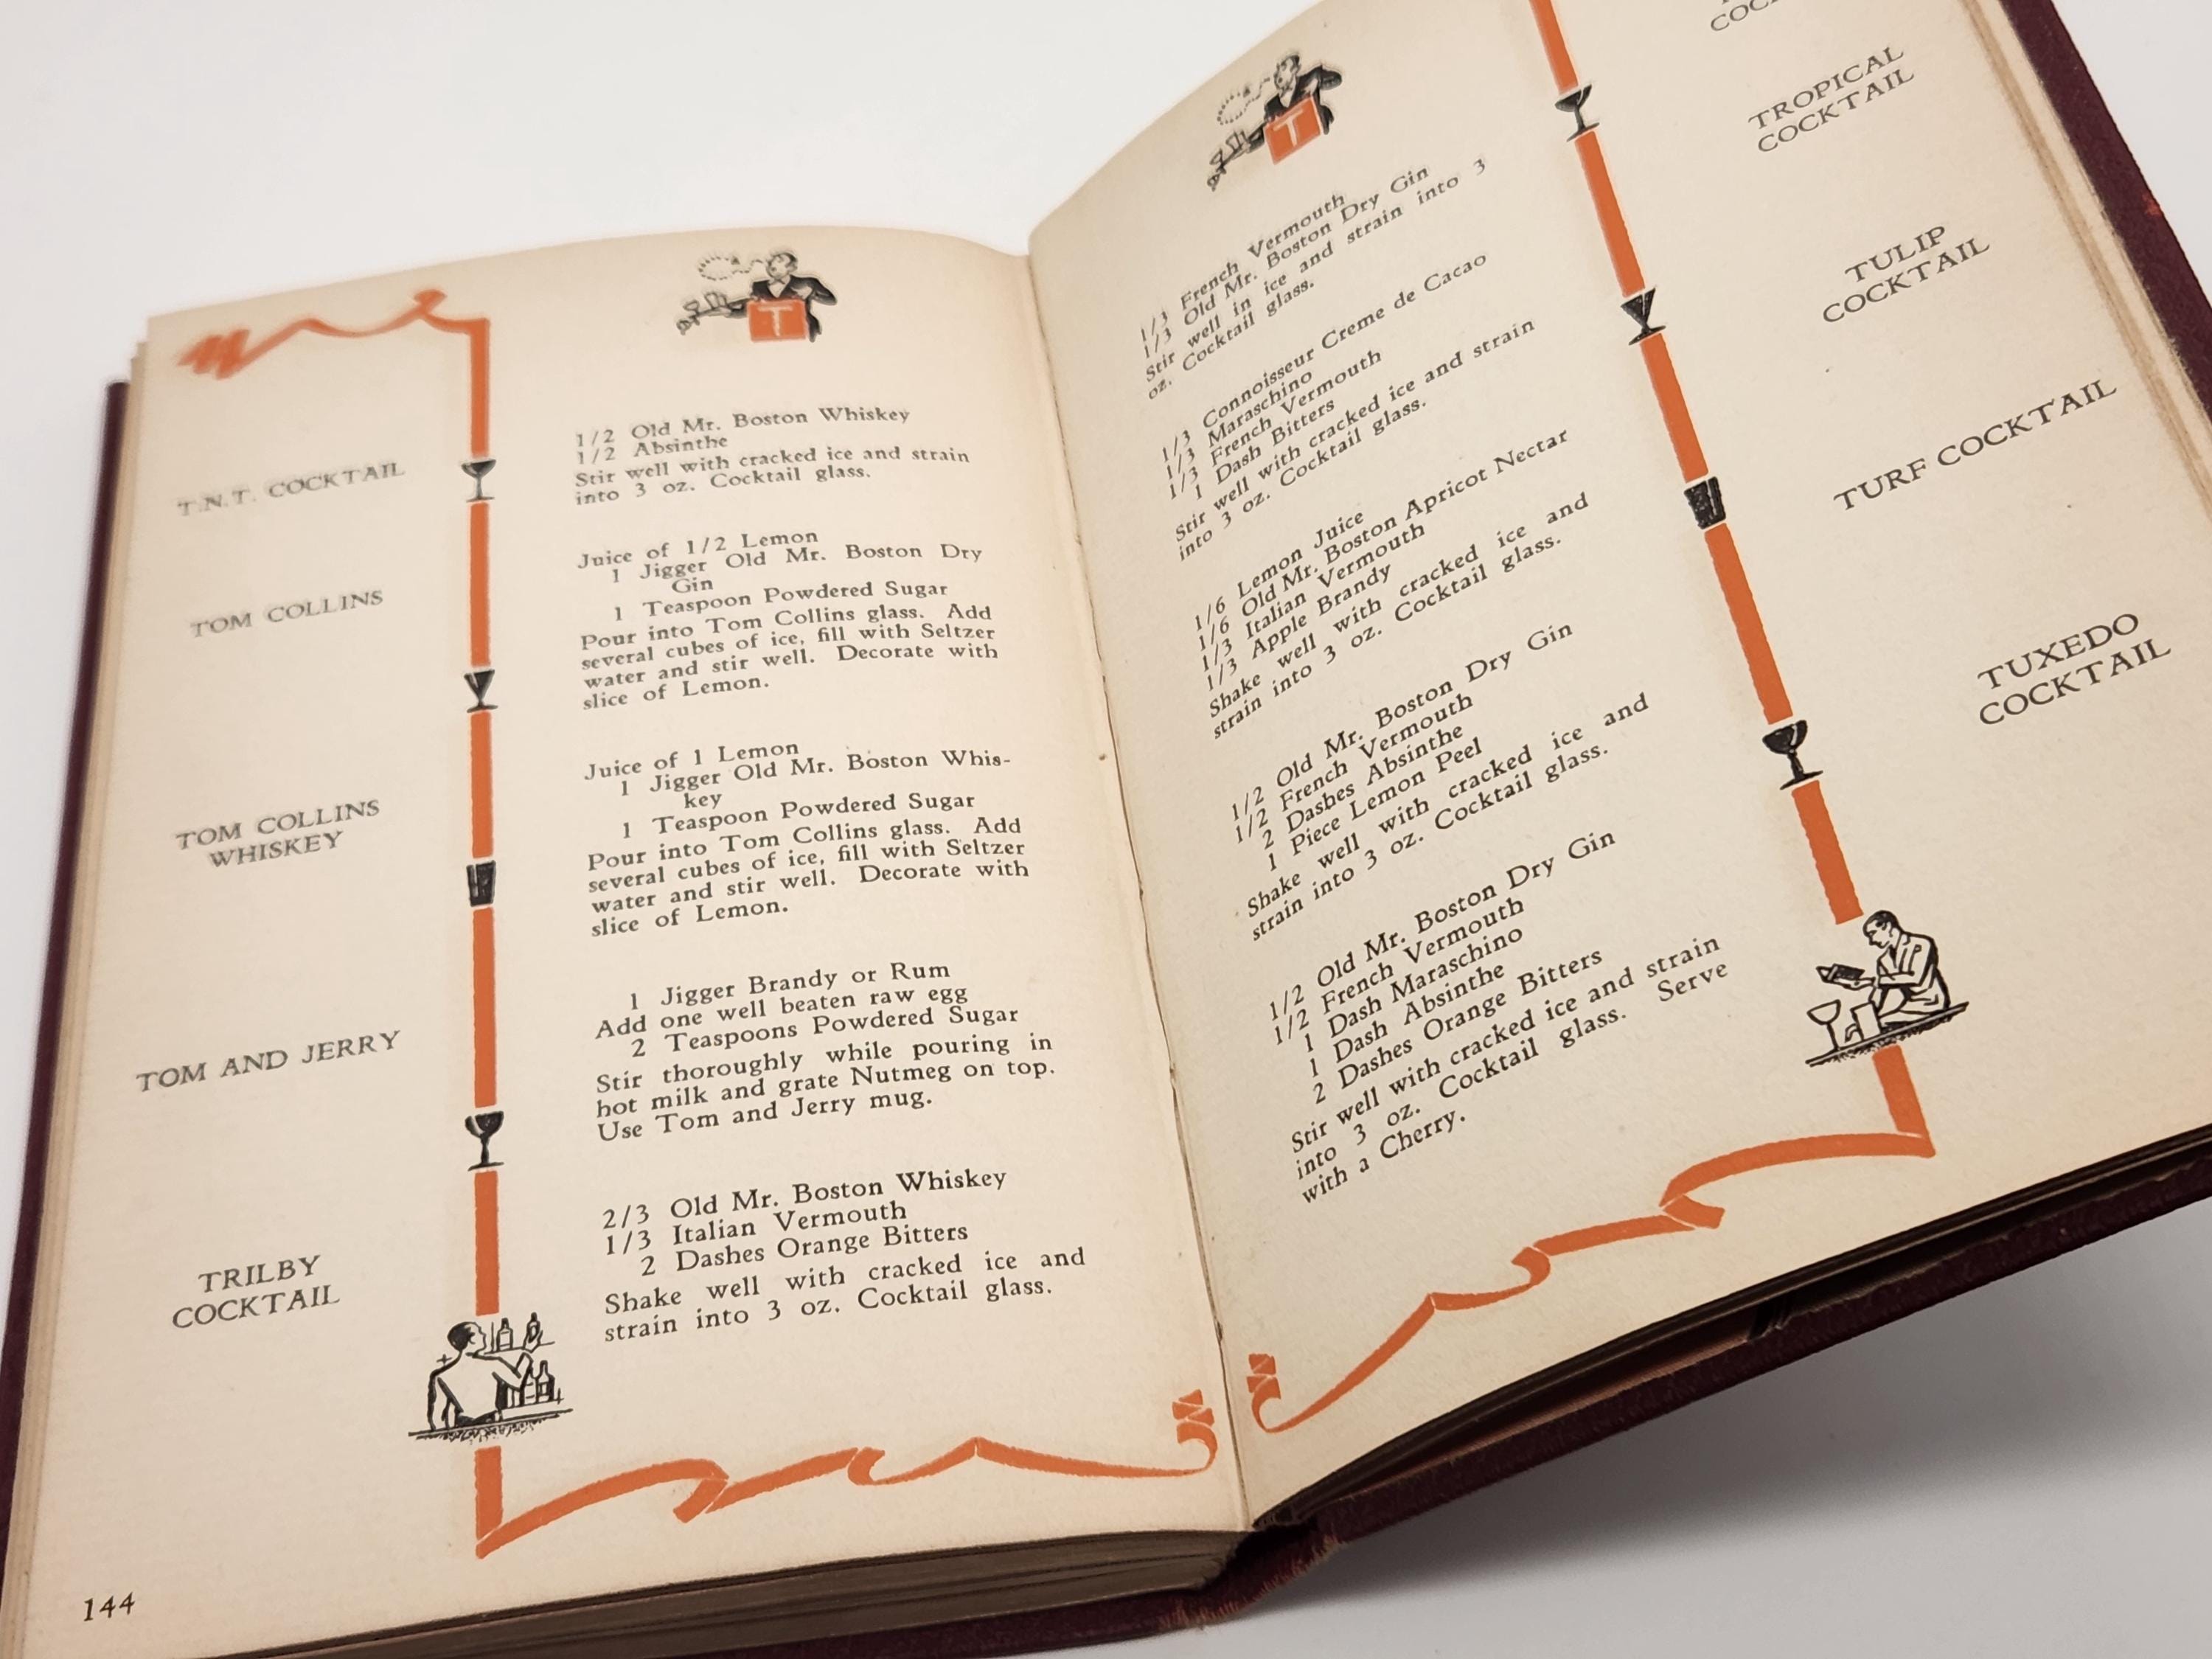 T
T.N.T. COCKTAIL
1/2 Old Mr. Boston Whiskey
1/2 Absinthe
Stir well with cracked ice and strain
into 3 oz. Cocktail glass.
TOM COLLINS
Juice of 1/2 Lemon
1 Jigger Old Mr. Boston Dry
Gin
1 Teaspoon Powdered Sugar
Pour into Tom Collins glass. Add
several cubes of ice, fill with Seltzer
water and stir well. Decorate with
slice of Lemon.
TOM COLLINS
WHISKEY
Juice of 1 Lemon
1 Jigger Old Mr. Boston Whis-
key
1 Teaspoon Powdered Sugar
Pour into Tom Collins glass. Add
several cubes of ice, fill with Seltzer
water and stir well. Decorate with
slice of Lemon.
TOM AND JERRY
1 Jigger Brandy or Rum
Add one well beaten raw egg
2 Teaspoons Powdered Sugar
Stir thoroughly while pouring in
hot milk and grate Nutmeg on top.
Use Tom and Jerry mug.
TRILBY
COCKTAIL
2/3 Old Mr. Boston Whiskey
1/3 Italian Vermouth
2 Dashes Orange Bitters
Shake well with cracked ice and
strain into 3 oz. Cocktail glass.
144
T
1/3 French Vermouth
1/3 Old Mr. Boston Dry Gin
Stir well in ice and strain into 3
oz. Cocktail glass.
TROPICAL
COCKTAIL
1/3 Connoisseur Creme de Cacao
1/3 Maraschino
1/3 French Vermouth
1 Dash Bitters
Stir well with cracked ice and strain
into 3 oz. Cocktail glass.
TULIP
COCKTAIL
1/6 Lemon Juice
1/6 Old Mr. Boston Apricot Nectar
1/3 Italian Vermouth
1/3 Apple Brandy
Shake well with cracked ice and
strain into 3 oz. Cocktail glass.
TURF COCKTAIL
1/2 Old Mr. Boston Dry Gin
1/2 French Vermouth
2 Dashes Absinthe
1 Piece Lemon Peel
Shake well with cracked ice and
strain into 3 oz. Cocktail glass.
TUXEDO
COCKTAIL
1/2 Old Mr. Boston Dry Gin
1/2 French Vermouth
1 Dash Maraschino
1 Dash Absinthe
2 Dashes Orange Bitters
Stir well with cracked ice and strain
into 3 oz. Cocktail glass. Serve
with a Cherry.